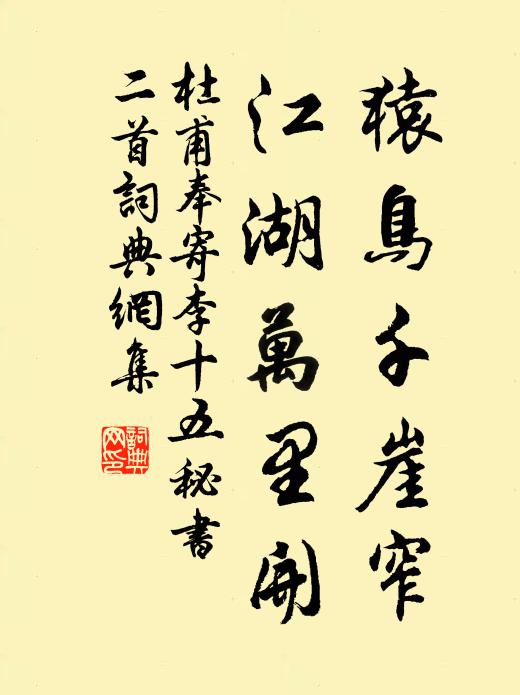 猿鳥千崖窄
江湖萬里開
杜甫奉寄李十五秘書
二首詞典網集
詞典
网印